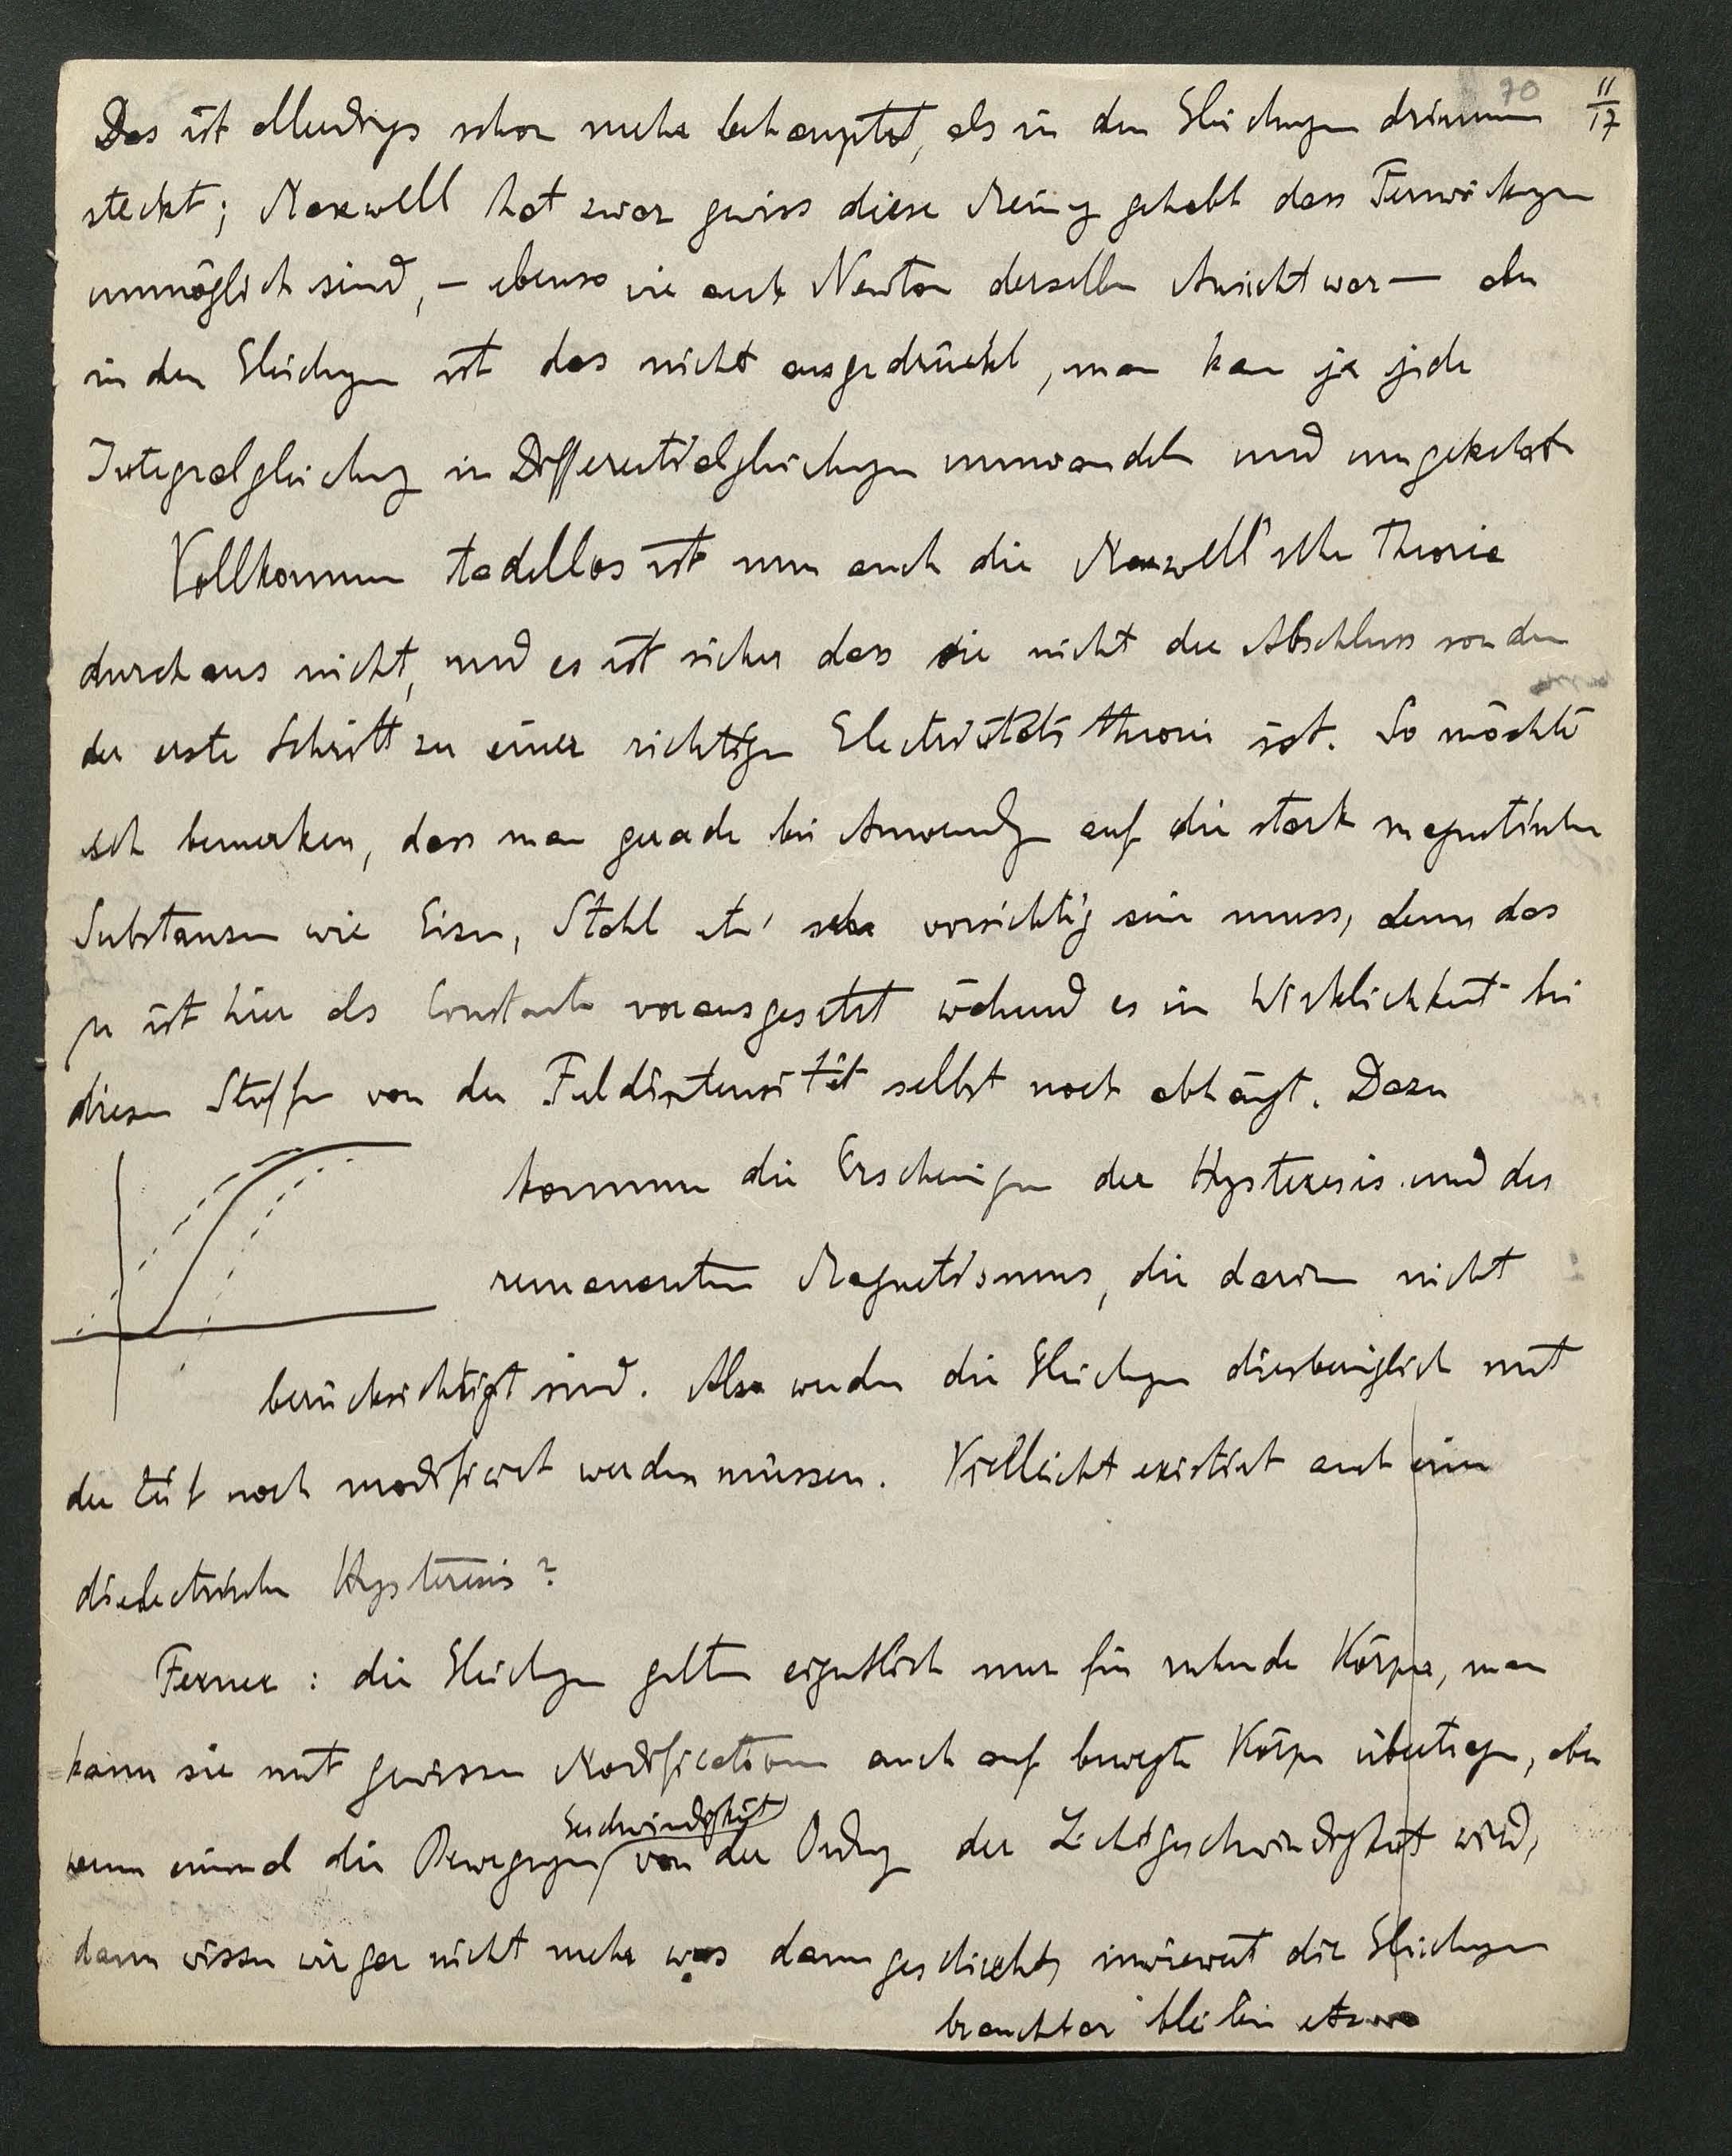 70
11/17
Das ist allerdings schon mehr behauptet, als in den Gleichungen drinnen
steckt; Maxwell hat zwar gewiss diese Meinung gehabt dass Fernwirkungen
unmöglich sind, – ebenso wie auch Newton derselben Ansicht war – aber
in den Gleichungen ist das nicht ausgedrückt, man kann ja jede
Integralgleichung in Differentialgleichungen umwandeln und umgekehrt
Vollkommen tadellos ist nun auch die Maxwell'sche Theorie
durchaus nicht, und es ist sicher dass sie nicht der Abschluss sondern
der erste Schritt zu einer richtigen Electricitätstheorie ist. So möchte
ich bemerken, dass man gerade bei Anwendung auf die stark magnetischen
Substanzen wie Eisen, Stahl etc sehr vorsichtig sein muss, denn das
μ ist hier als Constante vorausgesetzt während es in Wirklichkeit bei
diesen Stoffen von der Feldintensität selbst noch abhängt. Dazu
kommen die Erscheinungen der Hysteresis und des
remanenten Magnetismus, die darin nicht
berücksichtigt sind. Also werden die Gleichungen diesbezüglich mit
der Zeit noch modificirt werden müssen. Vielleicht existirt auch eine
dielectrische Hysteresis?
Ferner: die Gleichungen gelten eigentlich nur für ruhende Körper, man
kann sie mit gewissen Modificationen auch auf bewegte Körper übertragen, aber
Geschwindigkeit
wenn einmal die Bewegungs von der Ordnung der Lichtgeschwindigkeit wird,
dann wissen wir gar nicht mehr was dann geschieht, inwieweit die Gleichungen
brauchbar bleiben